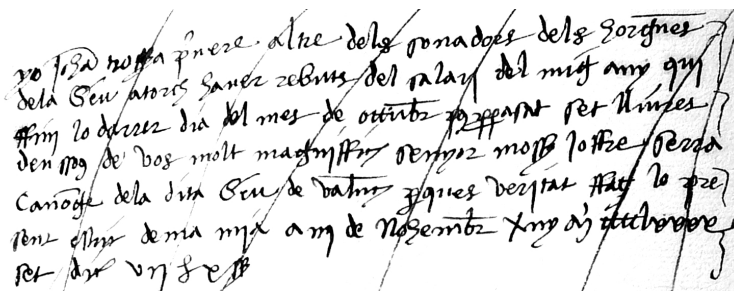 yo joha prevere altre dels sonados dels horguens
dela Seu atorch haver rebuts del salari del mig any qui
ffini lo darrer dia del mes de ottubr pus passat set lliures
deu sos de vos molt magniffich senyor moss joffre serra
Canoge dela dita Seu de valnc perques veritat ffaç lo pre
sent escrit de ma mia a de Nohembr any
set dich vii ll x ss